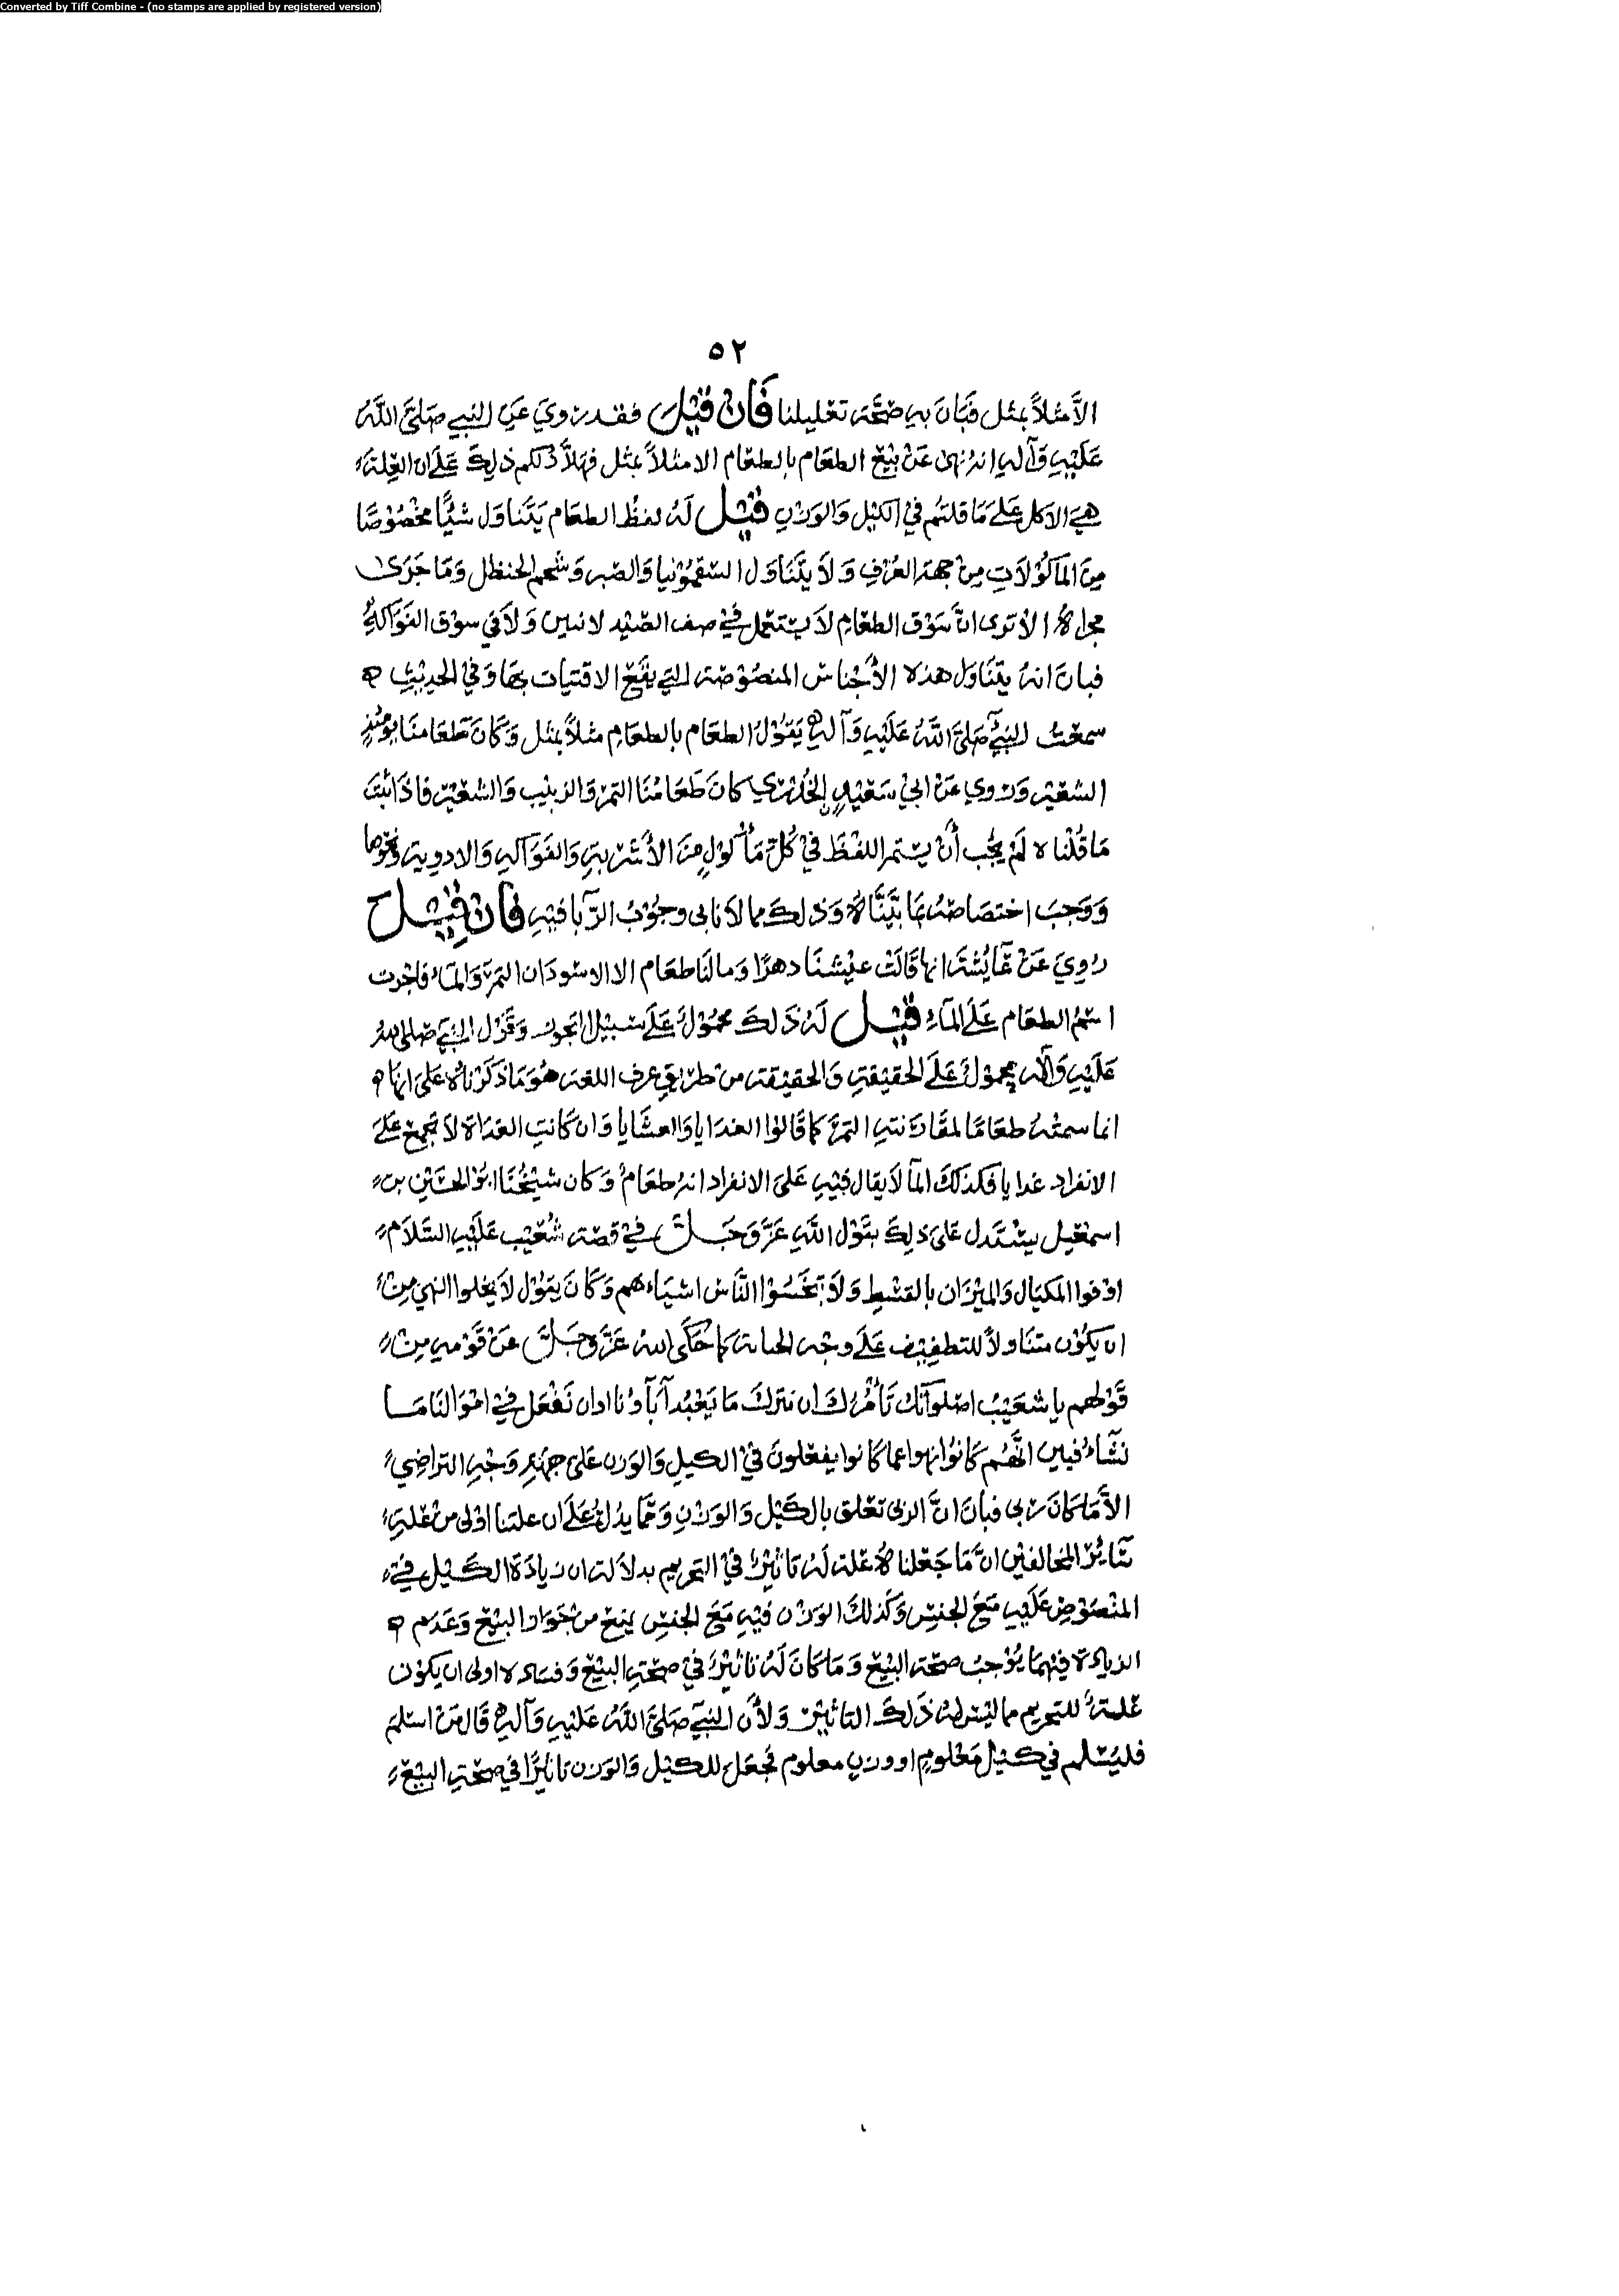 Converted by Tiff Combine - (no stamps are applied by registered version)
٥٢
الاَّ مثلاً بمثل فَبَانَ بهِ صحَّة تعليلنا فَان قيْل فقد روِيَ عَنِ النبي صَلىَّ اللَّهُ
عَلَيْهِ وَآلهِ انهُ نهىٰ عَنْ بَيْع الطعَام بالطعَام الا مثلاً بمثل فهلاَّ دلكم ذلِكَ عَلىَ ان العِلة
هِيَ الاكل عَلىَ مَا قلتم في الكيْل وَالوَزْنِ قيْل لَهُ لفظُ الطعَام يَتَنَاوَل شيْئًا مخصُوْصًا
مِنَ المَأكوْلاَتِ مِنْ جهَة العُرْفِ وَلاَ يَتَنَاوَل السّقمُوْنِيا وَالصّبر وَشَحم الحنظل وَمَا جَرَىٰ
مجراهُ الاَ ترى انَّ سَوْق الطعَام لاَ يسْتعمل فيْ صف الصّيْد لانيين وَلاَ في سوْق الفَوَاكهِ
فبان انهُ يتَنَاول هذه الأجْناس المنصوْصَة التي يقَعُ الاقتيات بهَا وَفي الحديْثِ
سمعْتُ النبيَّ صَلىَّ اللَّهُ عَلَيْهِ وَآلهِ يَقوْلُ الطعَام بالطعَامِ مثلاً بمثل وَكَانَ طعَامنَا يوْمئذٍ
الشعيْر وَروي عَنْ ابيْ سَعيْدٍ الخُدْرِي كانَ طَعَامُنَا التمرَ وَالزبيْب وَالشعيْر فاذا ثبتَ
مَا قُلْناه لَمْ يجُب أنْ يسْتمر اللفْظَ فيْ كُلّ مَأكولٍ مِنَ الأشْربَةِ وَالفَوَاكهِ وَالادوية وَنحْوها
وَوَجبَ اختصَاصُهُ بمَا بَيَّنَّاهُ وَذلكَ مما لاَ نابى وجوْبُ الرّبا فيْهِ فان قيْل
روِيَ عَنْ عَايُشَة انها قَالتْ عيْشنَا دهرًا وَما لنَا طعَام الا الاسْودَان التمرَ وَالمَاءُ فاجْرت
اسْمُ الطعَام عَلىَ المَاءِ قيْل لَهُ ذَلكَ محمُوْلٌ عَلىَ سَبيْل التجوز وَقَوْل النبيّ صَلى اللهُ
عَلَيْهِ وَآله محموْلٌ عَلىَ الحقيْقةِ وَالحقيْقة من طريْقِ عرف اللغة هوَ مَا ذكَرْناهُ عَلىَ انها
انما سمتْهُ طعَامًا لمقَارنتهِ التمرَ كما قَالوا الغدَايا وَالعشَايا وَان كَانتِ الغدَاة لاَ تجمعُ عَلىَ
الانفراد غدايا فكذلكَ المآ لاَ يقال فيْهِ عَلىَ الانفراد انهُ طعَامٌ وَكان شيْخُنَا ابوْ الحسَيْن بن
اسمعيْل يسْتَدل عَلىَ ذلِكَ بقَوْل اللَّهِ عَزَّ وَجَلَّ فيْ قصّة شُعَيْب عَلَيْهِ السَّلاَم
اوْفوا المكيَال وَالميْزَان بالقسْطِ وَلاَ تبْخَسُوْا النَّاسَ اشيَاءَهم وَكَانَ يقوْل لاَ يخلوا النهي مِنْ
ان يكوْن متنَاولاً للتطفيْفِ عَلىَ وجْه الخيانة كما حَكىَ اللهُ عَزَّ وَجَلَّ عَنْ قَوْمهِ مِنْ
قَوْلهم يا شعَيْبُ اصَلوَاتكَ تَأمُرُكَ ان نترُكَ مَا يَعْبُد آبَاؤنا اوان نَفْعَل فيْ امْوَالنَا مَا
نشَاءُ فبيَن انَّهُمْ كَانوْا نهوا عما كانوا يفعَلونَ فيْ الكيْلِ وَالوَزن عَلىَ جهَةِ وَجْهِ التراضِي
الاَّ مَا كَانَ ربى فبانَ انَّ الربىٰ تعَلق بالكَيْل وَالوَزْنِ وَممَّا يدُلُّ عَلىَ ان علتنا اوْلى من عْلة
سَائِر المخالفيْن انَّ مَا جَعَلناهُ علة لَهُ تاثيْرٌ فيْ التحريم بدلاَلة ان زيادَة الكيْل في
المنْصوْصِ عَلَيْهِ مَعَ الجنسِ وَكَذلكَ الوزْن فيْهِ مَعَ الجنسِ يمنع من جَوَاز البيْع وَعَدَم
الزيادة فيْهمَا يوْجبُ صحّة البَيْع وَمَا كانَ لَهُ تاثيْرٌ فيْ صحَّةِ البيْع وَفسَاده اولى ان يكوْن
عْلةً للتحريم مما ليْسَ لهُ ذَلكَ التاثيْر وَلأَن النبيَّ صَلىَّ اللَّهُ عَلَيْهِ وَآلهِ قَالَ مَنْ اسْلم
فليُسْلم في كيْل مَعْلومٍ او وزنٍ معلوم فجعَل للكيْل وَالوَزن تاثيْرًا في صحَّةِ البيْع